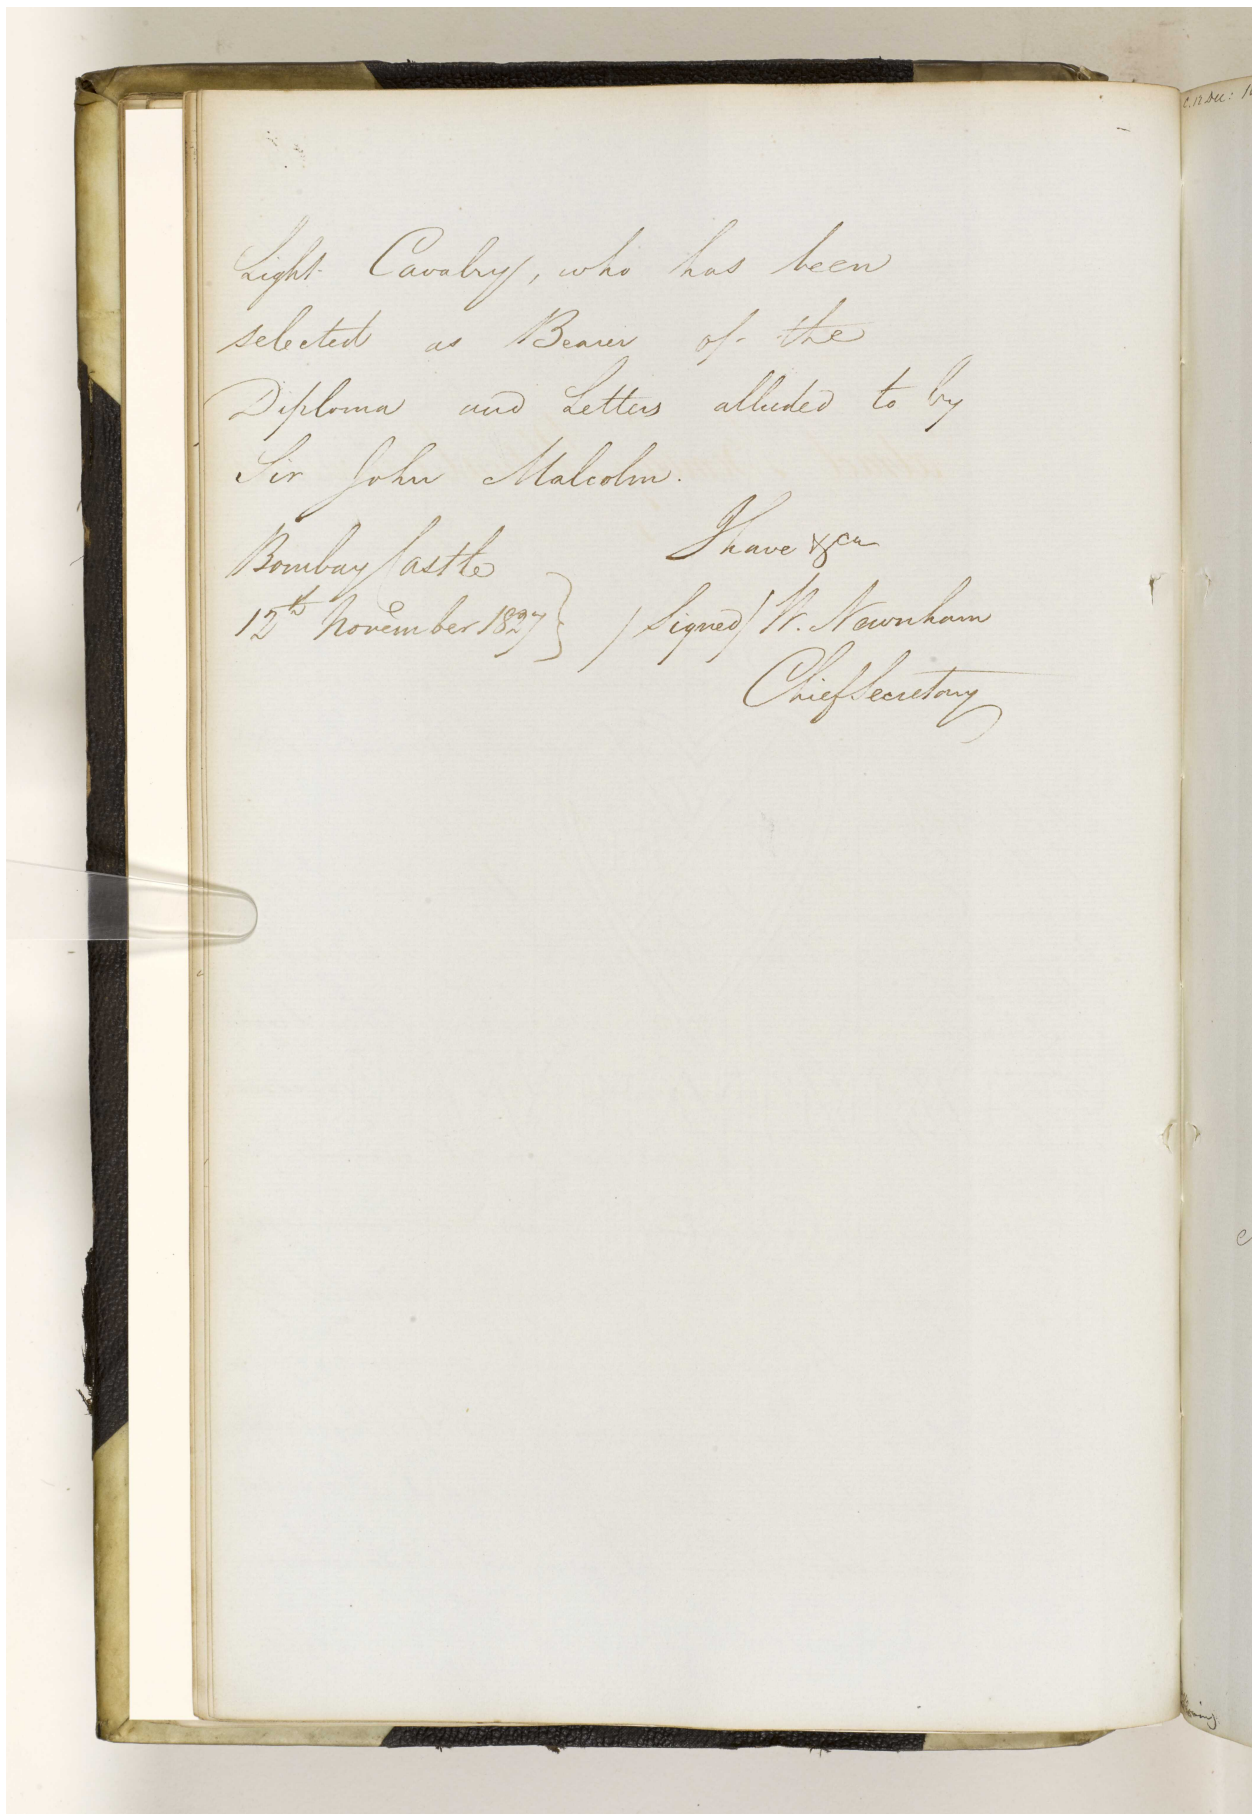 Light Cavalry, who has been
selected as Bearer of the
Diploma and Letters alluded to by
Sir John Malcolm.
I have &ca
Bombay Castle
12th November 1827 } /Signed/ W. Newnham
Chief Secretary